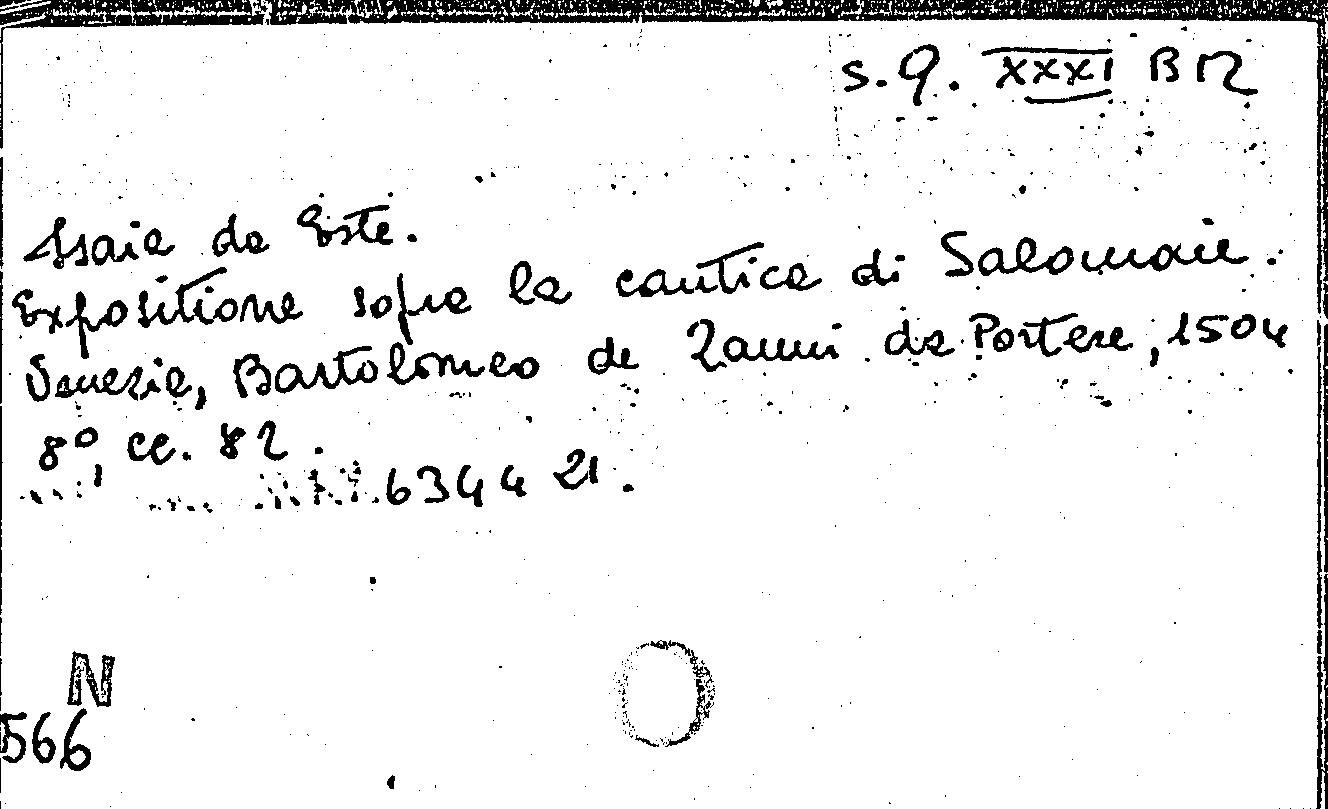 S.Q. XXXI B 12
Isaia da Este.
Expositione sopra la cantica di Salomone.
Venezia, Bartolomeo de Zanni da Portese, 1504
8º, cc. 82.
6344 21.
N
566